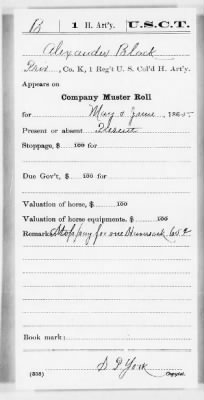 B | 1 H. Art'y. | U.S.C.T.
Alexander Black
Priv., Co. K, 1 Reg't U. S. Col'd H. Art'y.
Appears on
Company Muster Roll
for May & June, 1865.
Present or absent Present
Stoppage, $ 100 for
Due Gov't, $ 100 for
Valuation of horse, $ 100
Valuation of horse equipments, $ 100
Remarks: Stop pay for one Haversack 65 ¢
Book mark:
S P York
(358) Copyist.